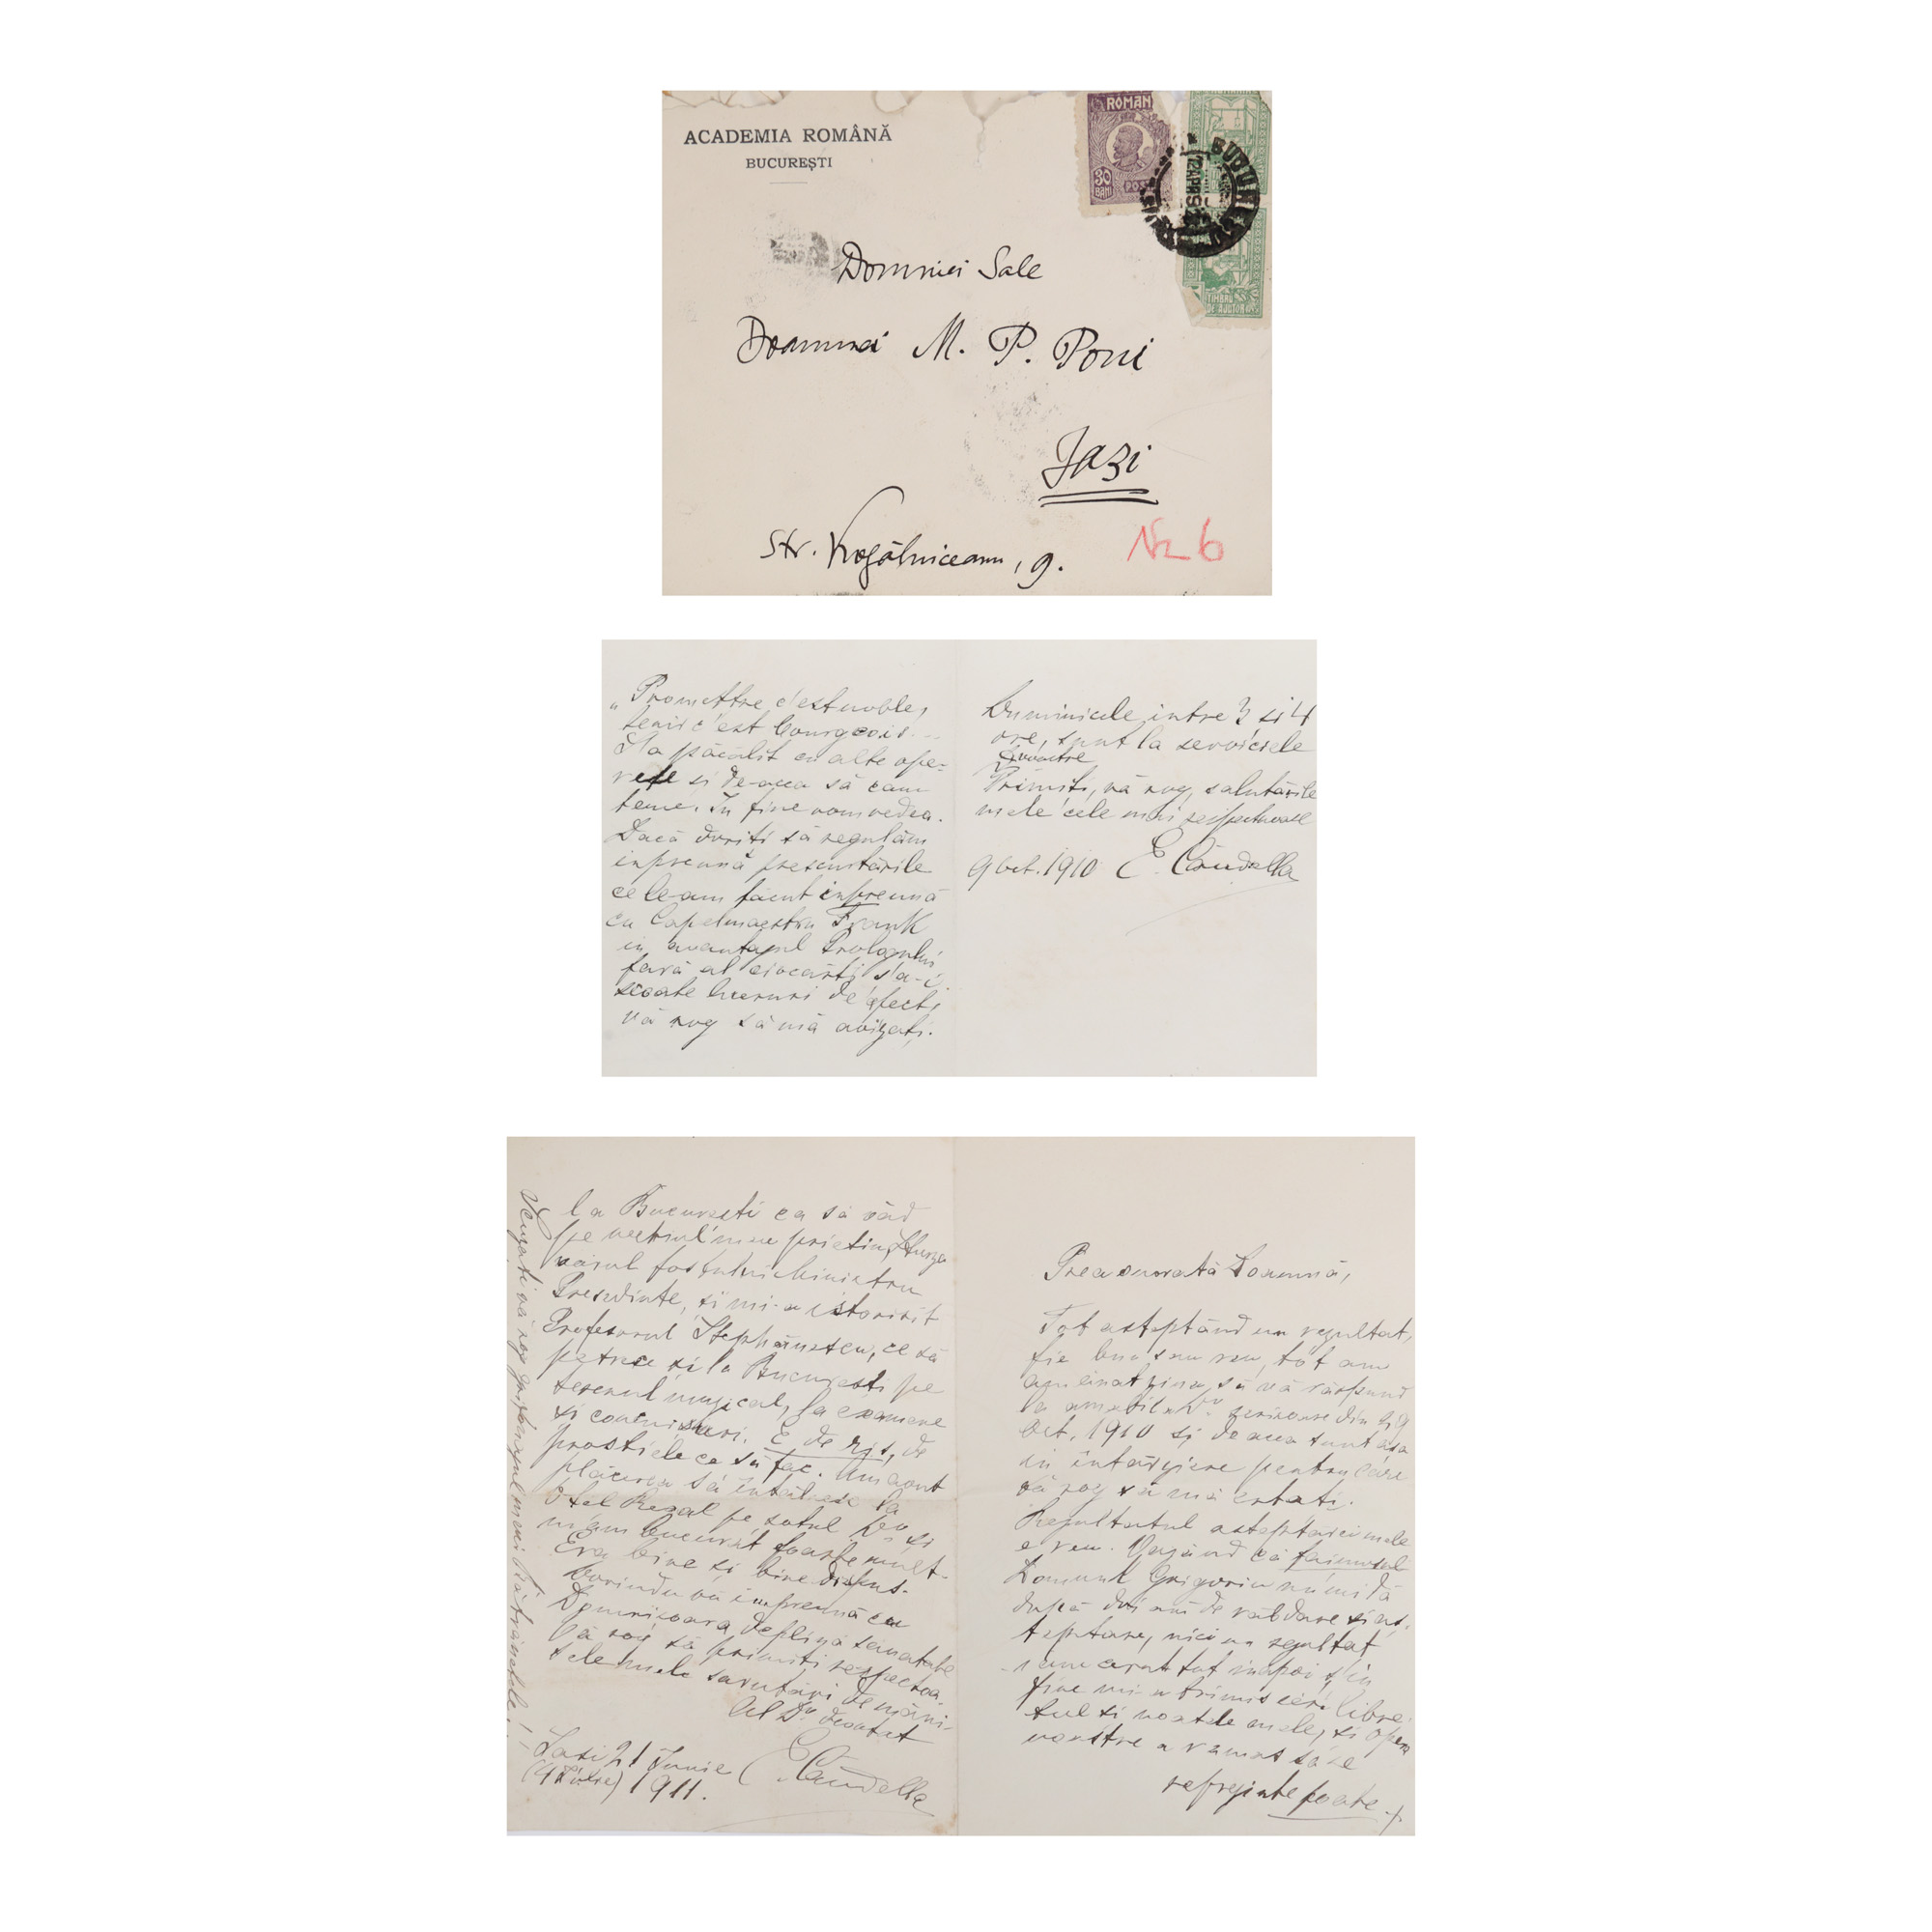 ACADEMIA ROMÂNĂ
BUCUREȘTI
ROMAN
30
BANI
POS
12 APR 9
TIMBRU
DE AJUTOR
Domniei Sale
Doamnei M. P. Poni
Jași
Str. Kogălniceanu, 9.
No 6
„Promettre c'est noble,
tenir c'est bourgeois...
M'a păcălit cu alte ope-
rete și de-aceea să cam
teme. In fine vom vedea.
Dacă doriți să regulăm
inpreună prescurtările
ce le-am făcut inpreună
cu Capelmaestru Frank
in avantagiul Prologului
fără al ciocârti, s'a-i
scoate lucruri de efect,
vă rog să mă avizați.
Duminicele intre 3 si 4
ore, sunt la serviciele
D-voastre
Primiti, vă rog, salutările
mele cele mai respectuoase
9 Oct. 1910 E. Caudella
la Bucuresti ca să văd
pe vechiul meu prietin, Sturza
vărul fostului Ministru
Presedinte, si mi-a istorisit
Profesorul Stephănescu, ce să
petrece si la Bucuresti pe
terenul muzical, la examene
si concursuri. E de rîs, de
prostiele ce să fac. Am avut
plăcerea să întâlnesc la
Otel Regal pe sotul Dv. si
m'am bucurat foarte mult.
Era bine si bine dispus.
Dorindu vă impreună cu
Domnisoara deplină sanatate
Vă rog să primiti respectoa-
sele mele sarutări de mâni-
Al Dv. devotat
E. Caudella
Iasi 21 Iunie
(4 Iulie) 1911.
vă rog
Prea onorată Doamnă,
Tot asteptând un rezultat,
fie bun sau rău, tot am
amânat ziua să vă răspund
la amabila Dv. scrisoare din 9
Oct. 1910 si de aceea sunt asa
in întârziere pentru care
vă rog să mă ertati.
Rezultatul asteptărei mele
e rău. Vazând că faimosul
Domnul Grigoriu nu-mi dă
după doi ani de răbdare si as-
teptare, nici un rezultat
i-am cerut tot inapoi, si in
fine mi-a trimis ieri libre-
tul si noatele mele, si opera
noastre a rămas să se
reprezinte poate